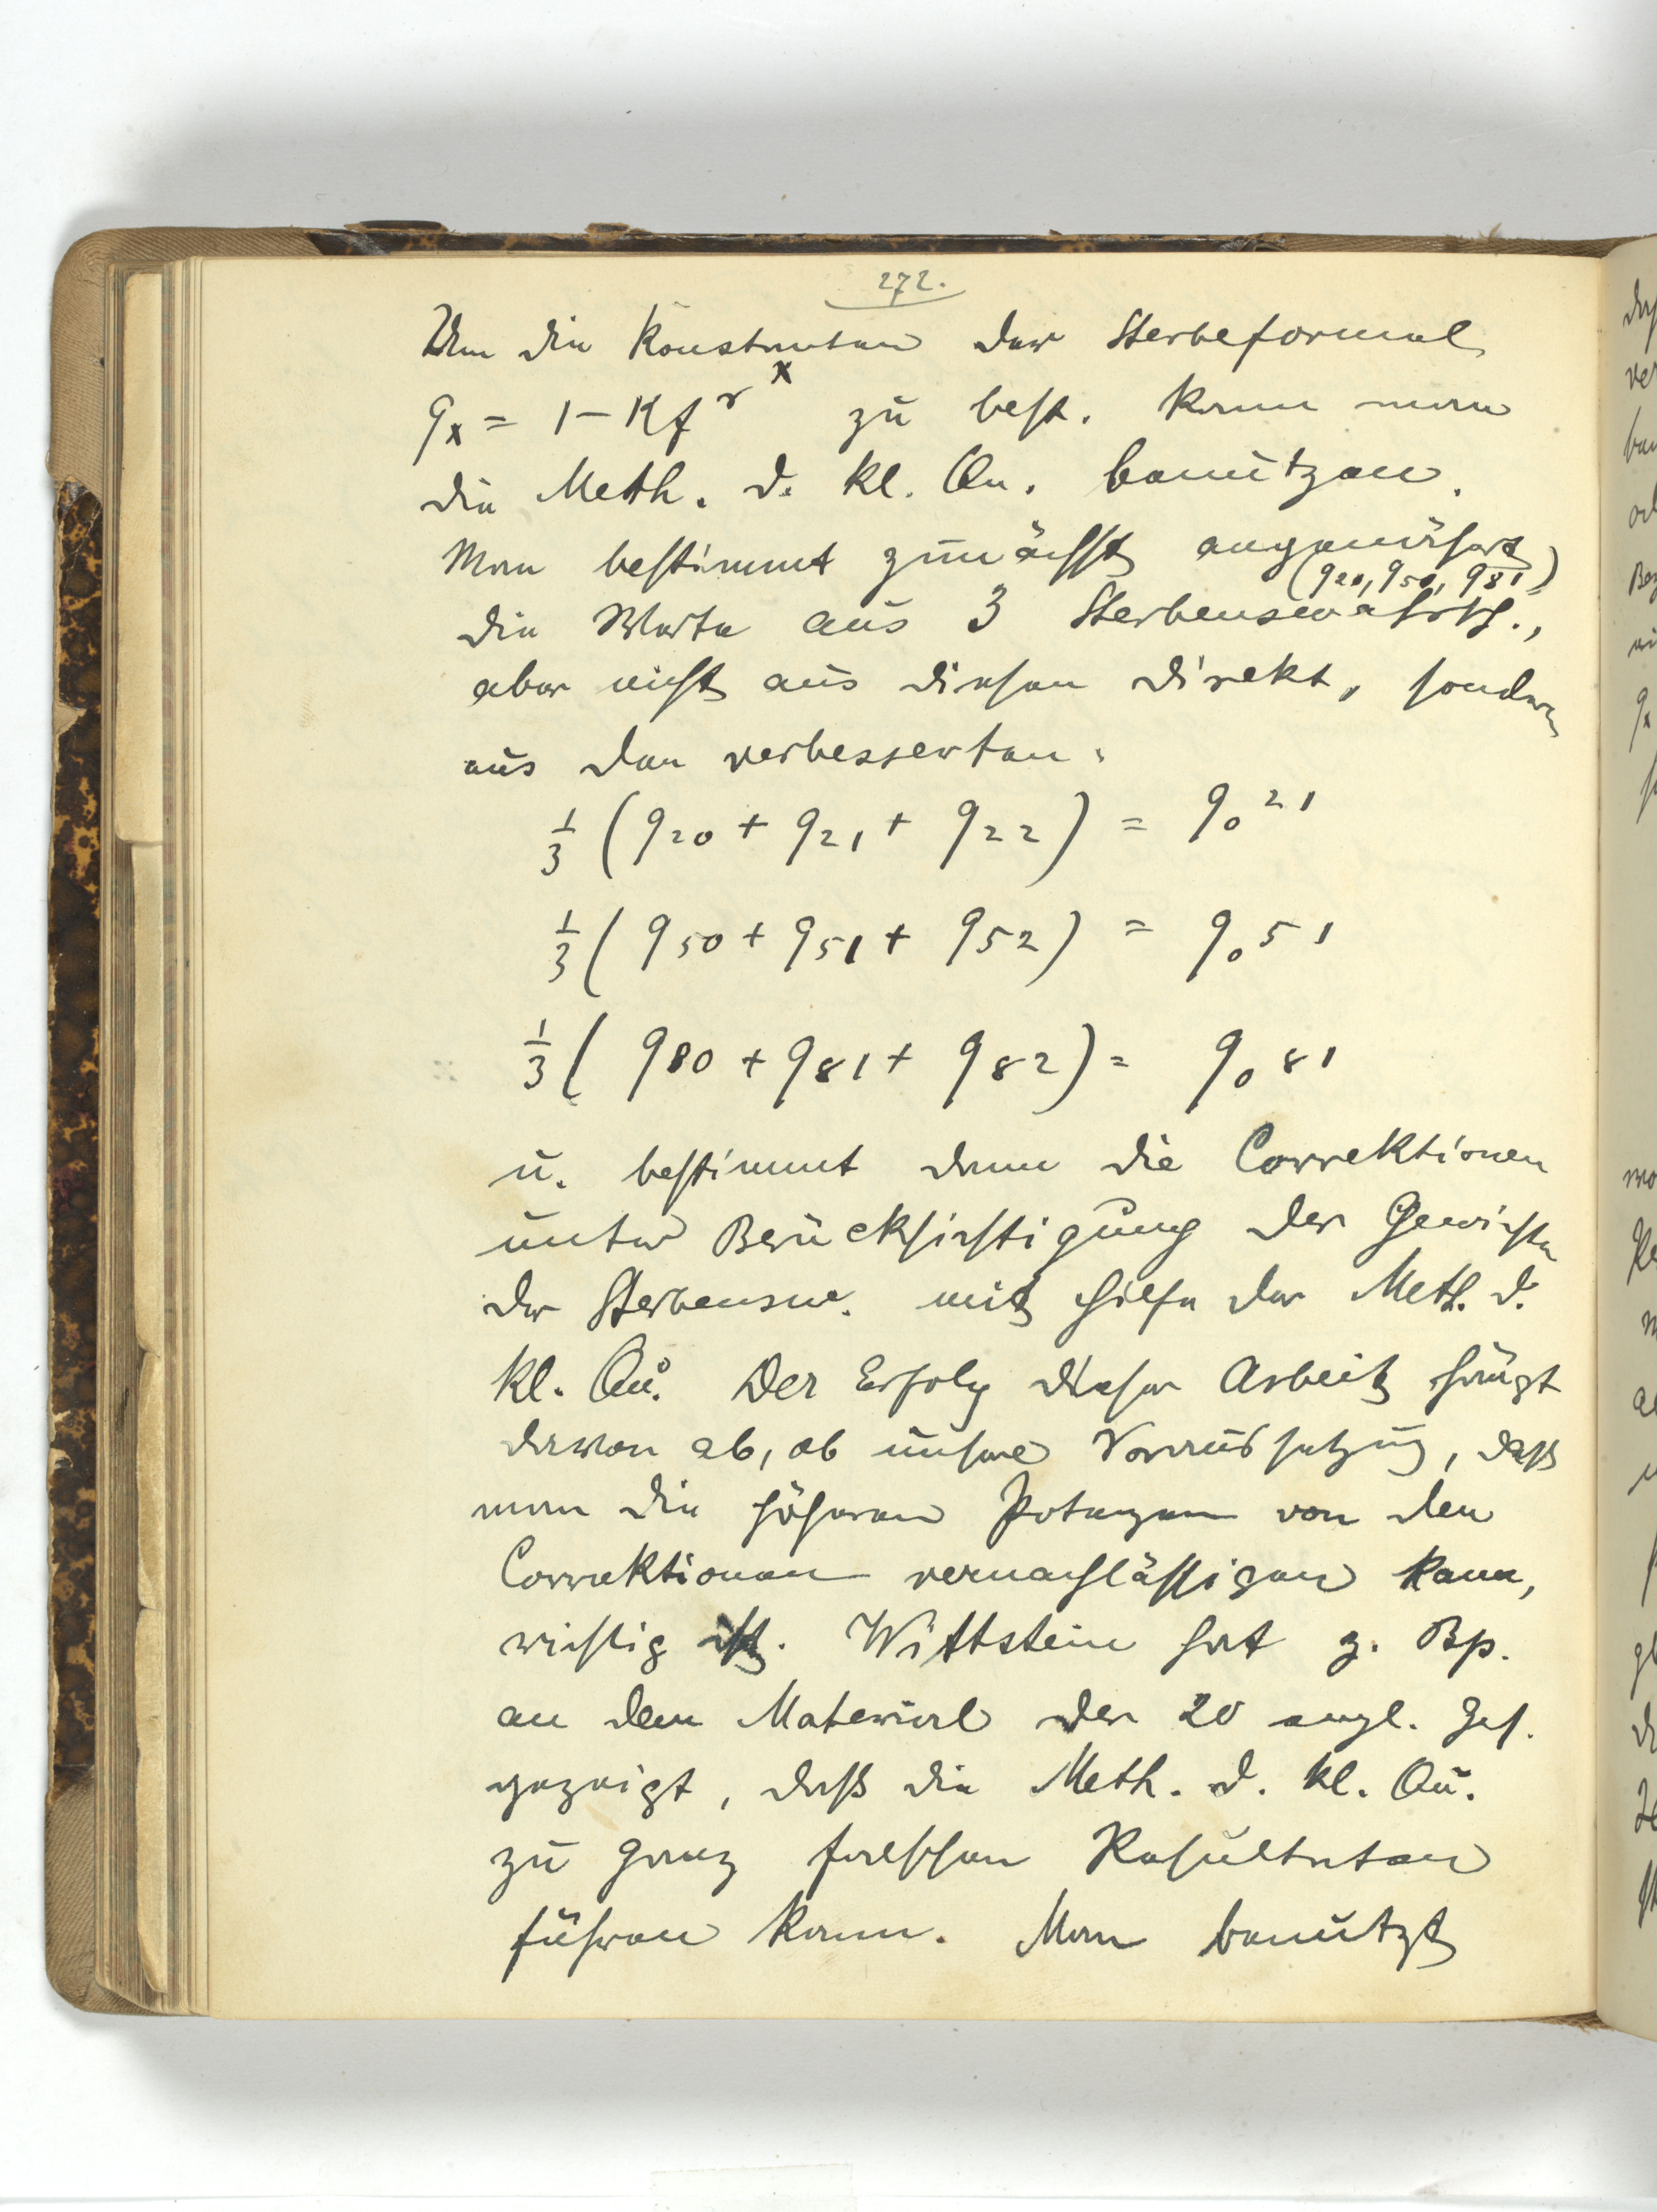 272.
Um die Konstanten der Sterbeformel
qx = 1 - Kf^r^x zu best. kann man
die Meth. d. kl. Qu. benützen.
Man bestimmt zunächst angenähert
(q20, q50, q81)
die Werte aus 3 Sterbenswahrsch.,
aber nicht aus diesen direkt, sondern
aus den verbesserten:
1/3 (q20 + q21 + q22) = q0 21
1/3 (q50 + q51 + q52) = q0 51
1/3 (q80 + q81 + q82) = q0 81
u. bestimmt dann die Correktionen
unter Berücksichtigung der Gewichte
der Sterbensw. mit Hilfe der Meth. d.
kl. Qu. Der Erfolg dieser Arbeit hängt
davon ab, ob unsere Voraussetzung, daß
man die höheren Potenzen von den
Correktionen vernachlässigen kann,
richtig ist. Wittstein hat z. Bsp.
an dem Material der 20 engl. Ges.
gezeigt, daß die Meth. d. kl. Qu.
zu ganz falschen Resultaten
führen kann. Man benützt